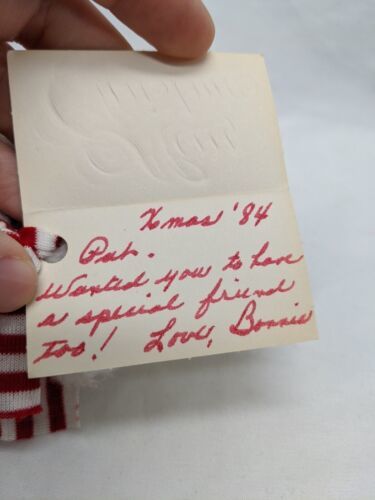 Xmas '84
Pat.
Wanted you to have
a special friend
too! Love, Bonnie